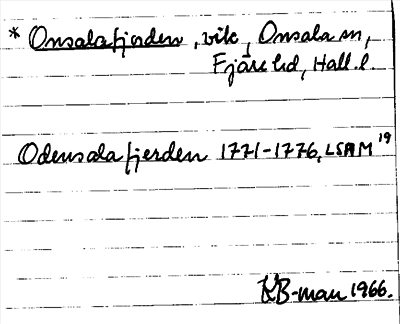 * Onsalafjorden, vik, Onsala sn,
Fjäre hd, Hall. l.
Odensala fjerden 1771-1776, LSAM 19
KB-man 1966.